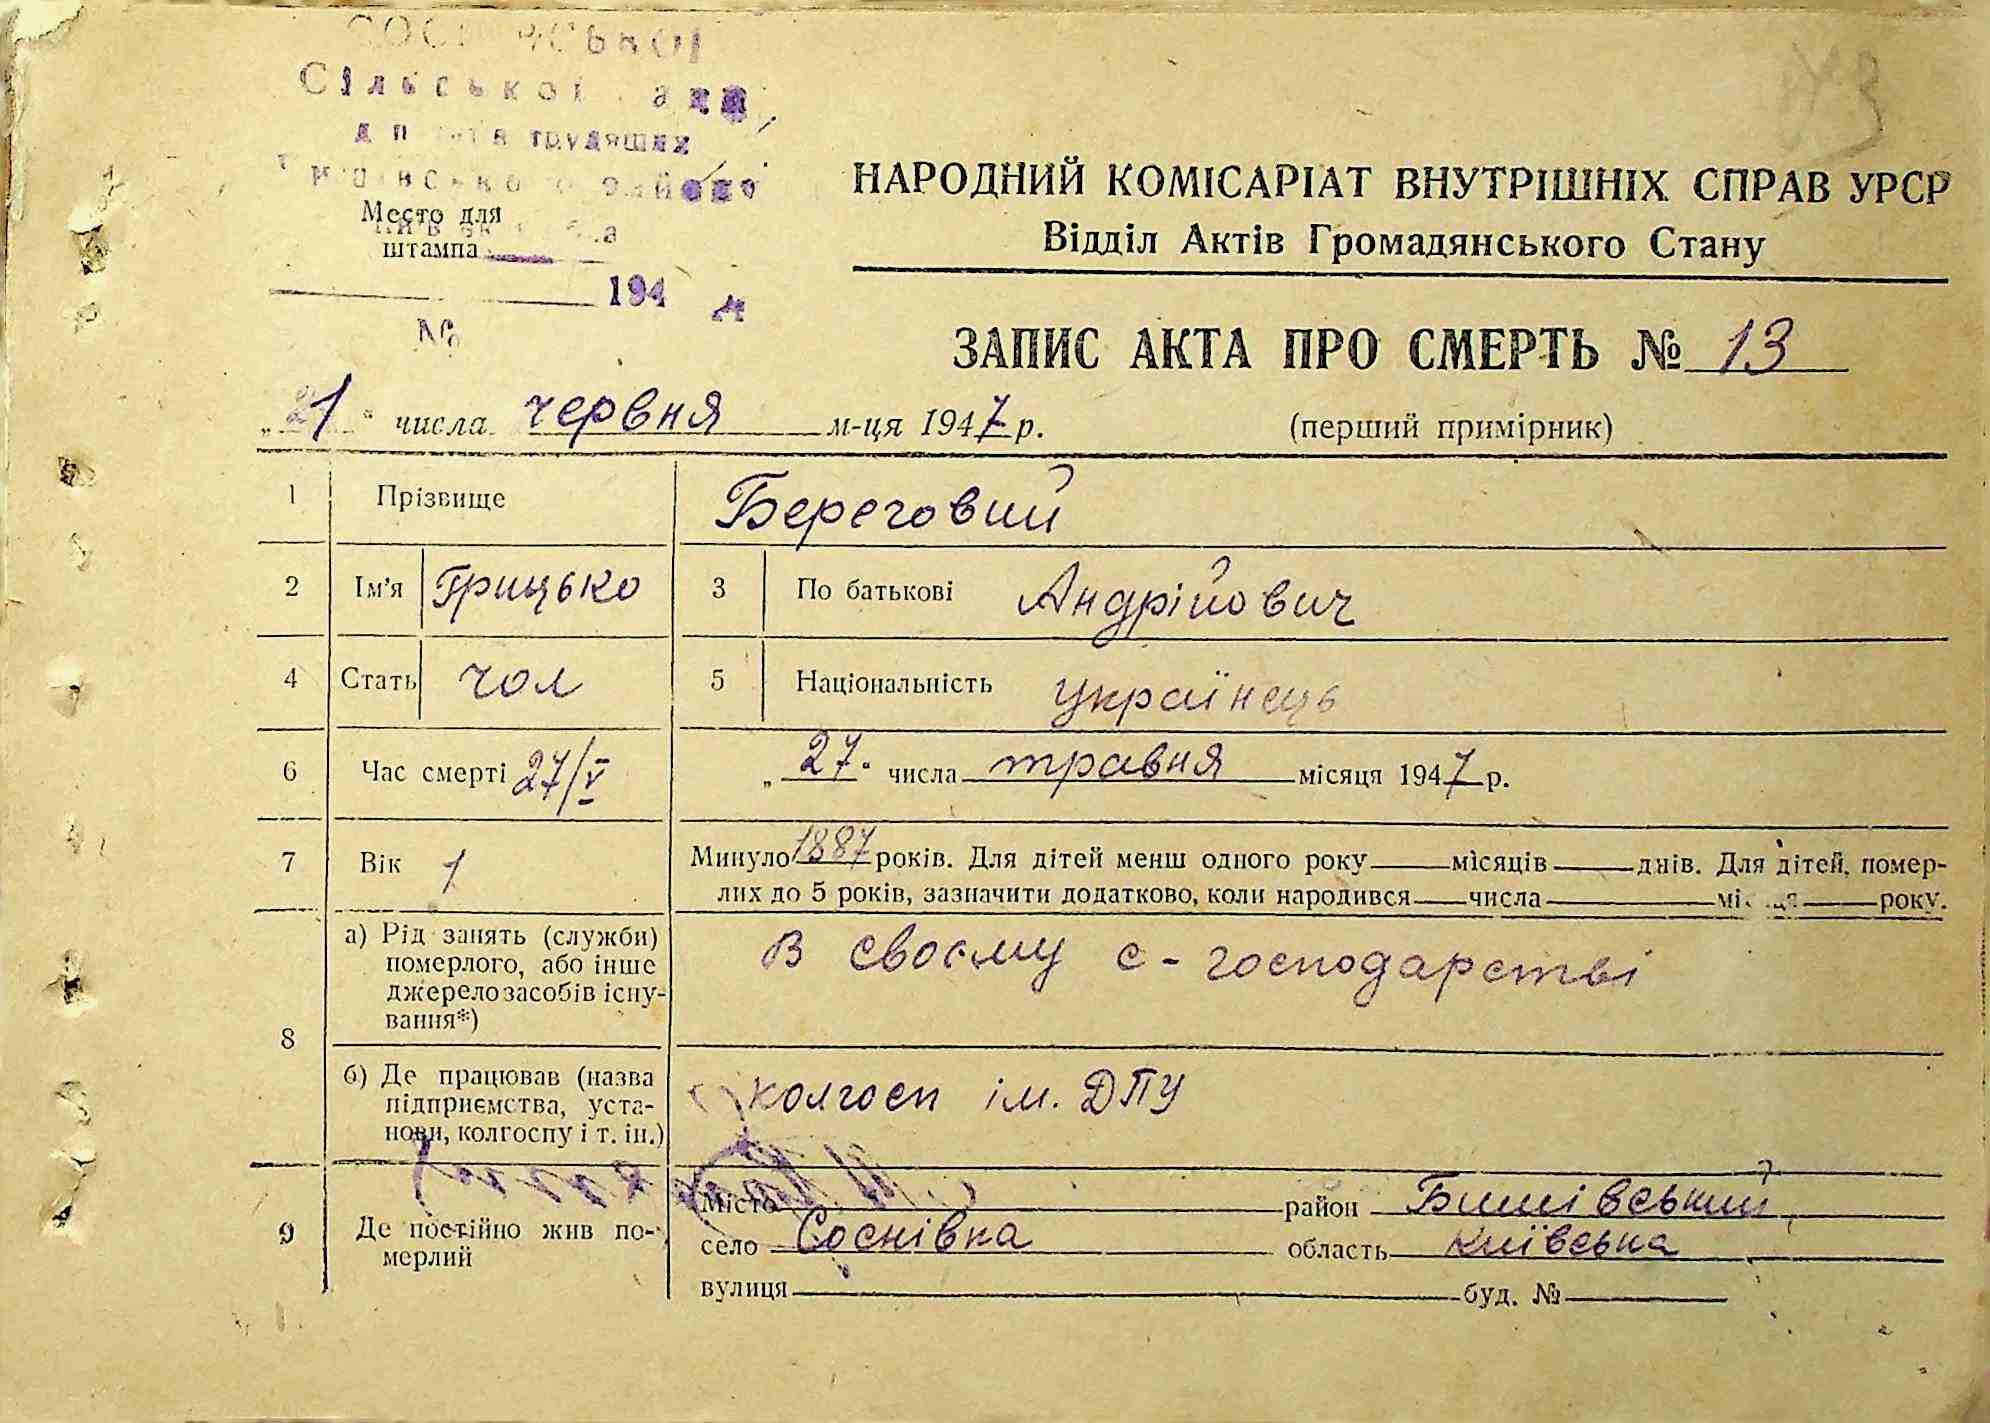 Сільської
трудящих
Место для
штампа
194
№
НАРОДНИЙ КОМІСАРІАТ ВНУТРІШНІХ СПРАВ УРСР
Відділ Актів Громадянського Стану
ЗАПИС АКТА ПРО СМЕРТЬ № 13
„21“ числа червня м-ця 1947 р. (перший примірник)
1 Прізвище Береговий
2 Ім'я Грицько 3 По батькові Андрійович
4 Стать чол 5 Національність українець
6 Час смерті 27/V „27“ числа травня місяця 1947 р.
7 Вік Минуло 1887 років. Для дітей менш одного року місяців днів. Для дітей, помер-
лих до 5 років, зазначити додатково, коли народився числа місяця року.
8 а) Рід занять (служби)
померлого, або інше
джерело засобів існу-
вання*)
В своєму с-господарстві
б) Де працював (назва
підприємства, уста-
нови, колгоспу і т. ін.)
колгосп ім. ДПУ
9 Де постійно жив по-
мерлий
Місто район Бишівський
село Соснівка область Київська
вулиця буд. №